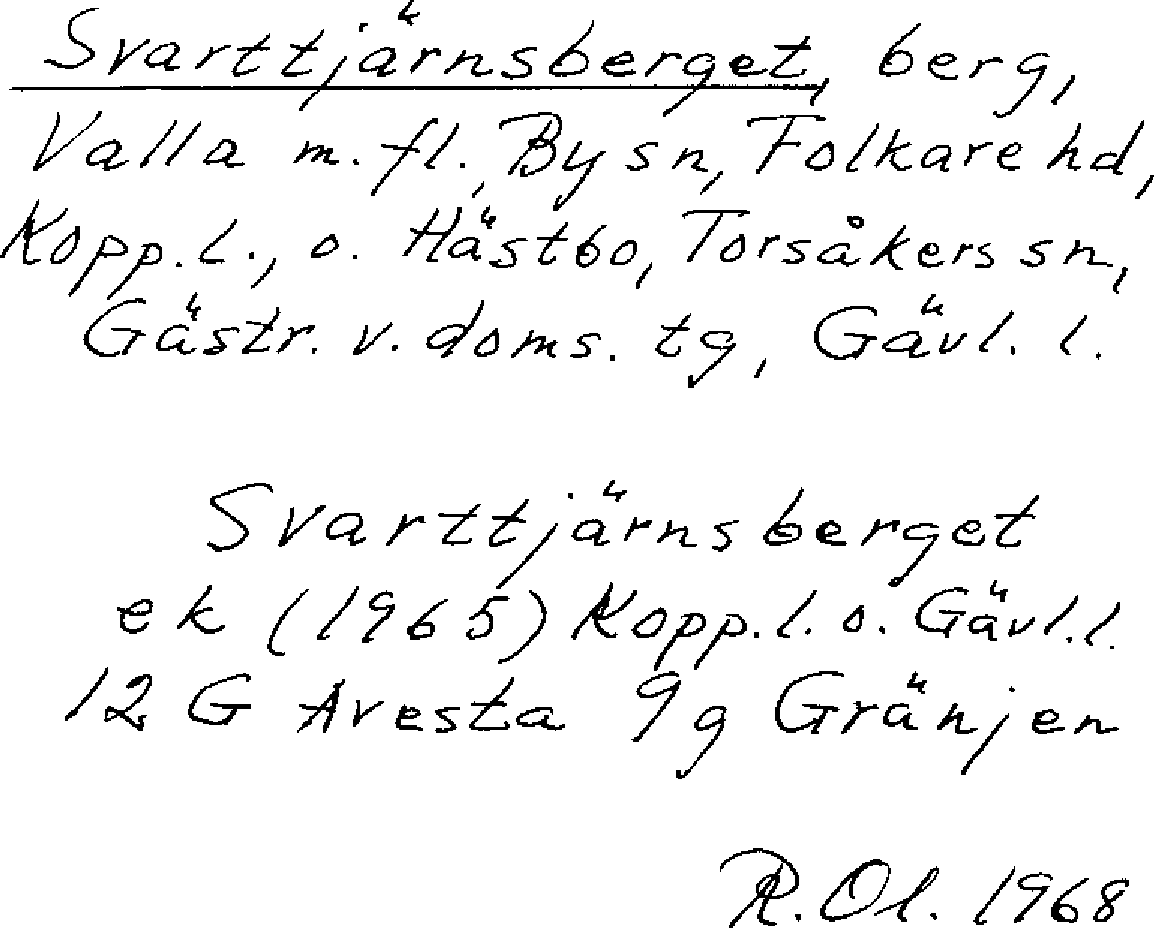 Svarttjärnsberget, berg,
Valla m.fl., By sn, Folkare hd,
Kopp.l., o. Hästbo, Torsåkers sn,
Gästr. v. doms. tg, Gävl. l.
Svarttjärnsberget
ek (1965) Kopp.l. o. Gävl.l.
12 G Avesta 9g Gränjen
R.Ol. 1968